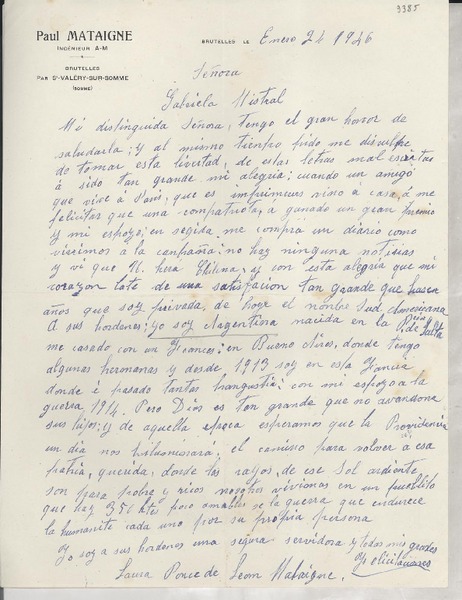 3385
Paul MATAIGNE
INGÉNIEUR A-M
BRUTELLES
PAR St-VALÉRY-SUR-SOMME
(SOMME)
BRUTELLES LE Enero 24 1946
Señora
Gabriela Mistral
Mi distinguida Señora, tengo el gran honor de
saludarla; y al mismo tiempo pido me disculpe
de tomar esta livertad, de estas letras mal escritas
á sido tan grande mi alegria; cuando un amigo
que vive à Paris, que es imprimeur vino a casa, á me
felicitar que una compatriota, á ganado un gran premio
y mi espozo, en segida me compra un diario como
vivimos à la campaña; no hay ninguna notisias
y vi que U. hera Chilena, y son esta alegria que mi
corazon late de una satisfacion tan grande que hasen
años que soy privada, de hoyr el nonbre Sud Americana
A sus hordenes; yo soy Argentina nacida en la Prov de Salta
me casado con un Frances; en Buenos Aires, donde tengo
algunas hermanas y desde, 1913 soy en esta Francia
donde é pasado tantas hangustias; con mi espozo a la
guerra 1914. Pero Dios es tan grande que no avandona
sus hijos; y de aquella epoca esperamos que la Providencia
un dia nos hiluminará; el camino para volver á esa
patria, querida, donde los rayos, de ese Sol ardiente
son para pobre y ricos nosotros vivimos en un pueblito
que hay 350 htes poco amables es la guerra que endurece
la humanite cada uno por su propia persona
Yo soy a sus hordenes una segura servidora y todas mis grandes
felicitaciones
Laura Ponce de Leon Mataigne.